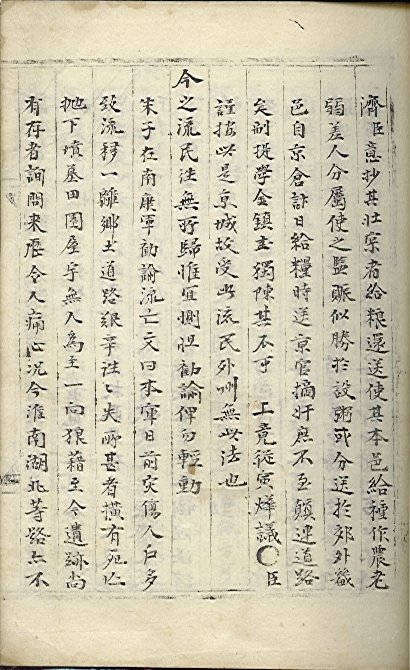 濟臣意抄其壯宲者給粮還送使其本邑給種作農老
弱差人分屬使之監賑似勝於設粥或分送於郊外畿
邑自京倉計日給糧時送京官摘奸庶不至顚連道路
矣副提學金鎭圭獨陳其不可 上竟從寅燁議○臣
謹按以是京城故受此流民外州無此法也
今之流民徃無所歸惟宜惻怛勸諭俾勿輕動
朱子在南康軍勸諭流亡文曰本軍日前灾傷人戶多
致流移一離鄉土道路艱辛徃〻失所甚者橫有死亡
抛下墳墓田園屋宇無人爲主一向狼藉至今遺跡尚
有存者詢問來歷令人痛心況今淮南湖北等路亦不